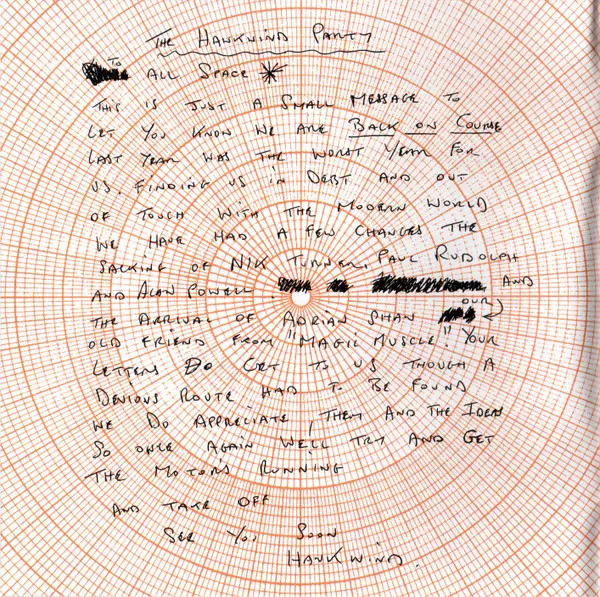 THE HAWKWIND PARTY
TO
ALL SPACE
THIS IS JUST A SMALL MESSAGE TO
LET YOU KNOW WE ARE BACK ON COURSE
LAST YEAR WAS THE WORST YEAR FOR
US. FINDING US IN DEBT AND OUT
OF TOUCH WITH THE MODERN WORLD
WE HAVE HAD A FEW CHANGES THE
SACKING OF NIK TURNER, PAUL RUDOLPH
AND ALAN POWELL. AND
THE ARRIVAL OF ADRIAN SHAW OUR
OLD FRIEND FROM "MAGIC MUSCLE". YOUR
LETTERS DO GET TO US THOUGH A
DEVIOUS ROUTE HAD TO BE FOUND
WE DO APPRECIATE, THEM AND THE IDEAS
SO ONCE AGAIN WE'LL TRY AND GET
THE MOTORS RUNNING
AND TAKE OFF
SEE YOU SOON
HAWKWIND.